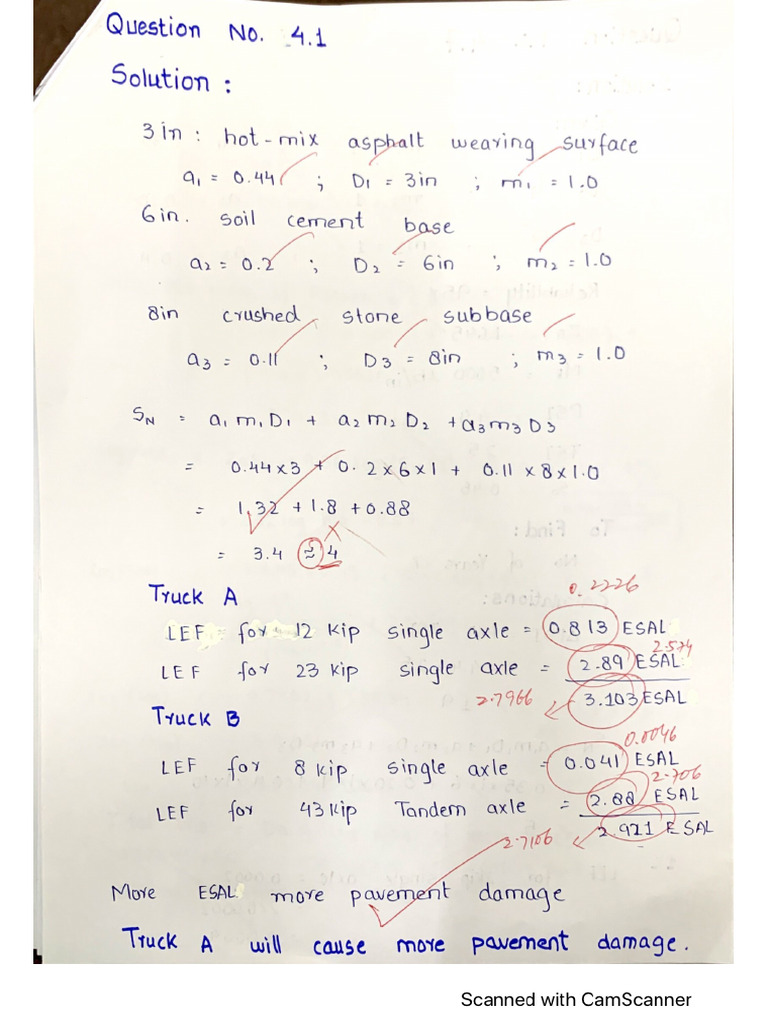 Question No. 4.1
Solution :
3in : hot-mix asphalt wearing surface
a1 = 0.44 ; D1 = 3in ; m1 = 1.0
6in. soil cement base
a2 = 0.2 ; D2 = 6in ; m2 = 1.0
8in crushed stone subbase
a3 = 0.11 ; D3 = 8in ; m3 = 1.0
SN = a1 m1 D1 + a2 m2 D2 + a3 m3 D3
= 0.44 x 3 + 0.2 x 6 x 1 + 0.11 x 8 x 1.0
= 1.32 + 1.8 + 0.88
= 3.4 ≈ 4
0.2226
Truck A
LEF = for 12 kip single axle = 0.813 ESAL
2.574
LEF for 23 kip single axle = 2.89 ESAL
2.7966 3.103 ESAL
Truck B
0.0046
LEF for 8 kip single axle = 0.041 ESAL
2.706
LEF for 43 kip Tandem axle = 2.88 ESAL
2.7106 2.921 ESAL
More ESAL more pavement damage
Truck A will cause more pavement damage.
Scanned with CamScanner